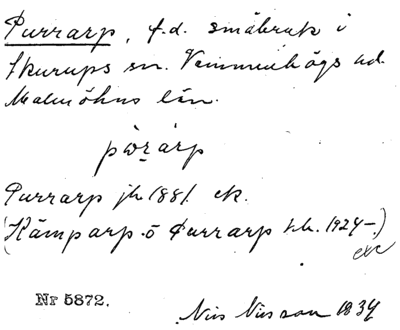 Purrarp, f.d. småbruk i
Skurups sn. Vemmenhögs hd.
Malmöhus län.
Purrarp jb 1881. ek.
(Kämparp o Purrarp 1924-.)
Nr 5872.
Nils Nilsson 1934